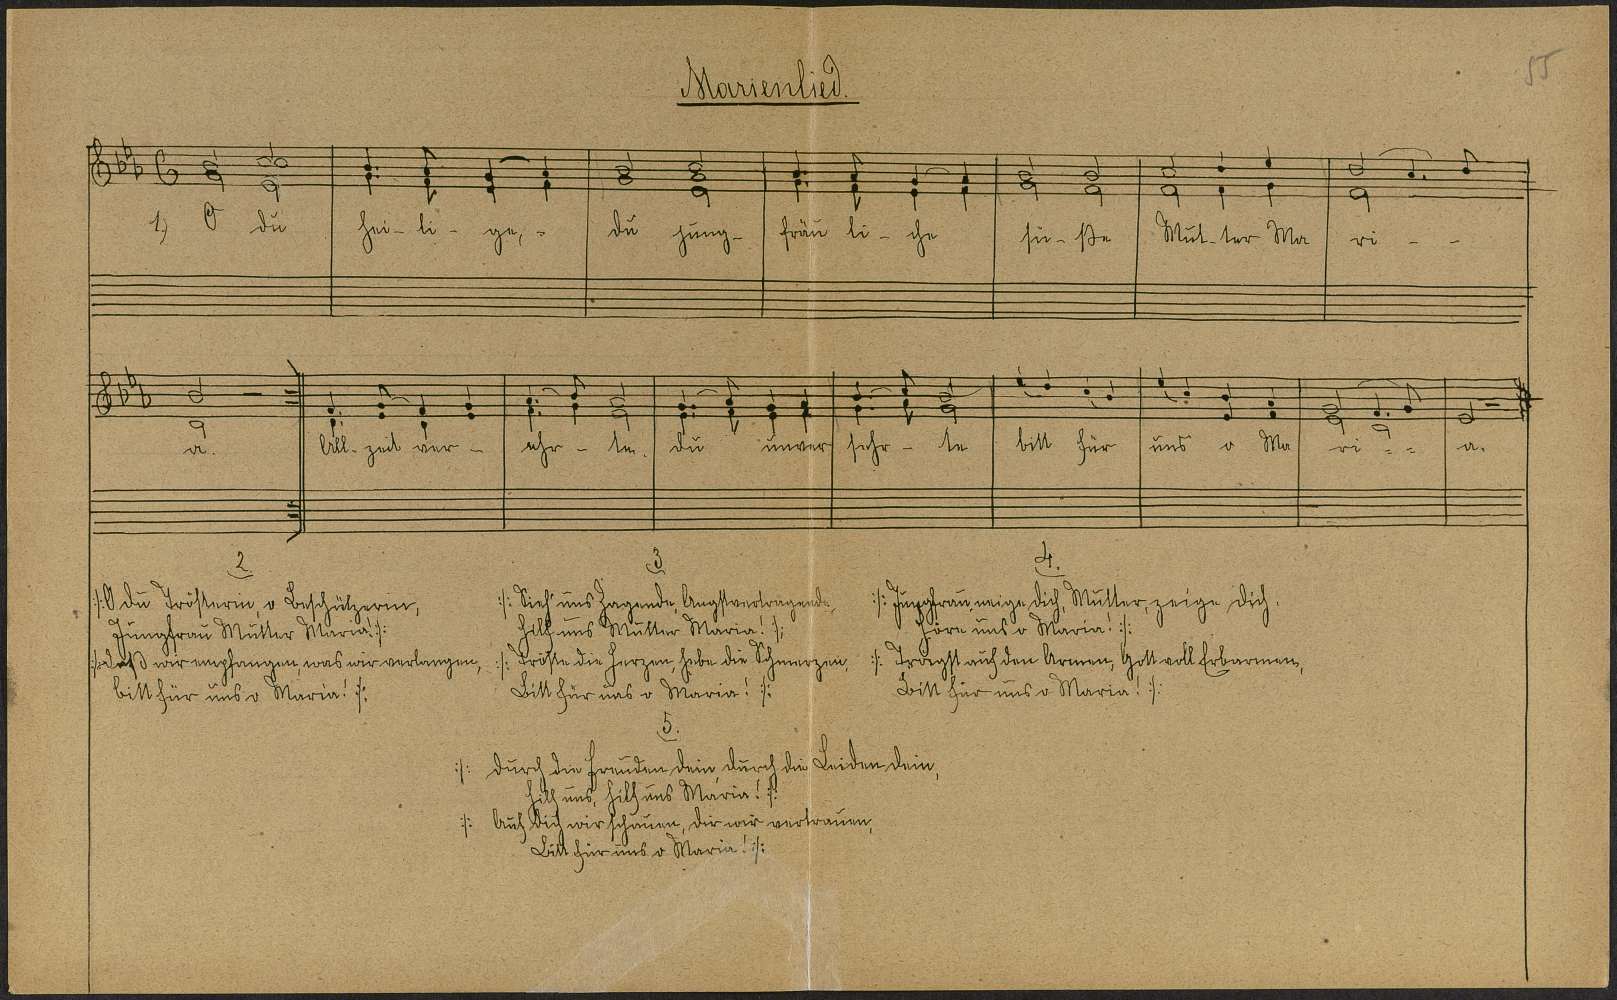 55
Marienlied.
1) O du hei- li- ge, - du jung- fräu li- che sü- ße Mut- ter Ma ri - -
a. All- zeit ver- ehr- te. du unver sehr- te bitt für uns o Ma ri - - a.
2.
:/: O du Trösterin, o Beschützerin,
Jungfrau Mutter Maria! :/:
:/: daß wir empfangen, was wir verlangen,
bitt für uns o Maria! :/:
3
:/: Sieh' uns Zagende, Angstvertragende,
hilf uns Mutter Maria! :/:
:/: Tröste die Herzen, hebe die Schmerzen,
Bitt für uns o Maria! :/:
4.
:/: Jungfrau, neige dich, Mutter, zeige dich.
höre uns o Maria! :/:
:/: auf den Armen, Gott voll Erbarmen,
Bitt für uns o Maria! :/:
5.
:/: Durch die Freuden dein, durch die Leiden dein,
hilf uns, hilf uns Maria! :/:
:/: Auf dich wir schauen, dir wir vertrauen,
Bitt für uns o Maria! :/: